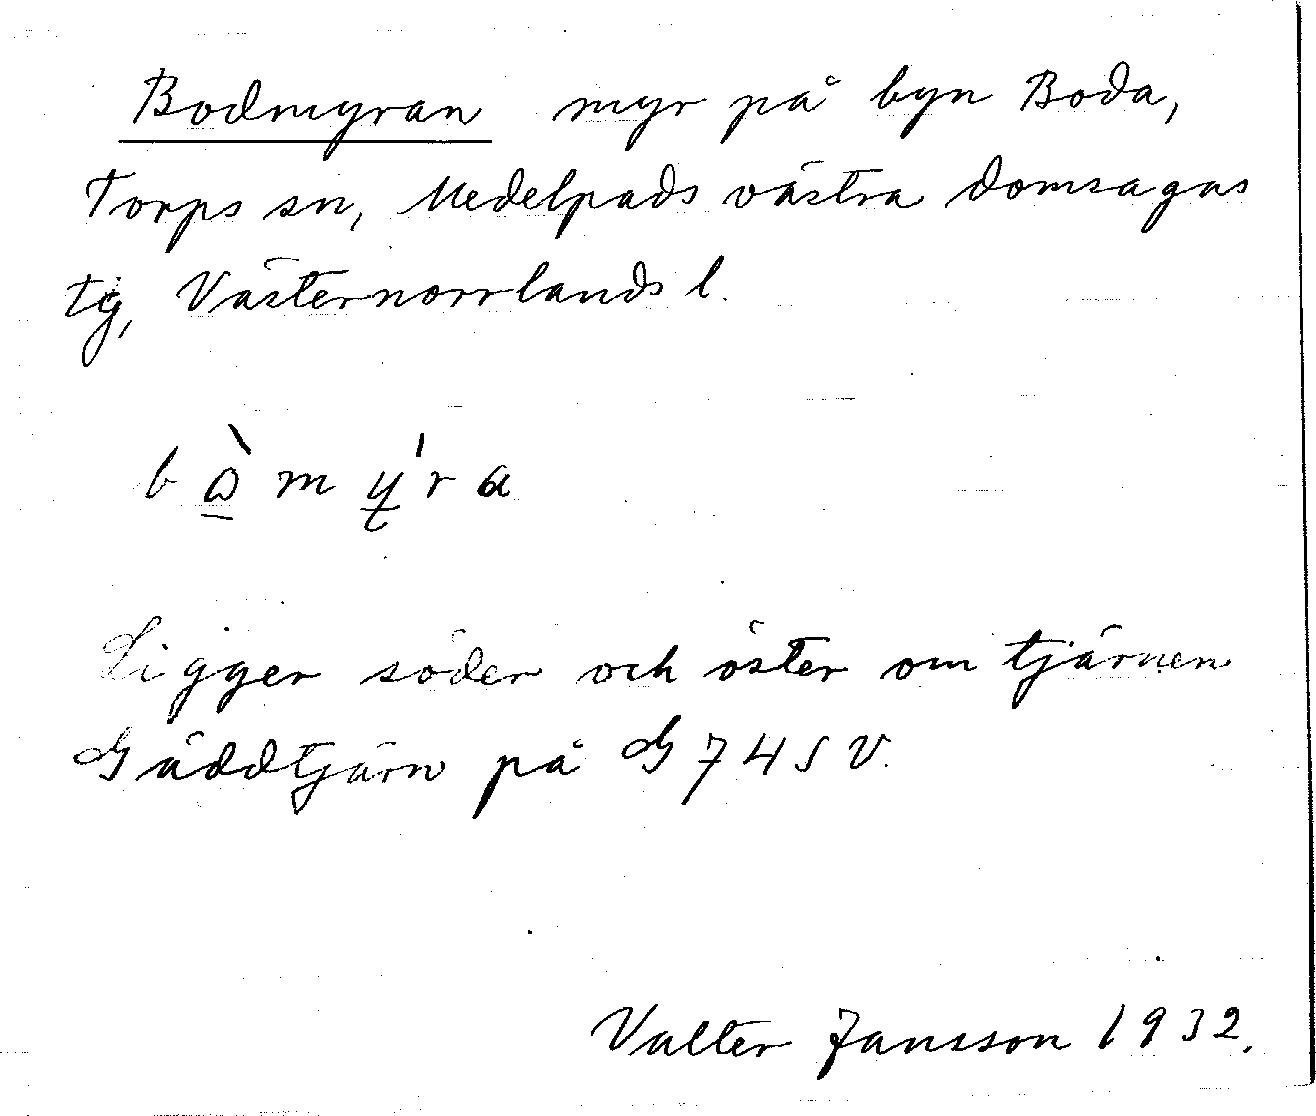 Bodmyran myr på byn Boda,
Torps sn, Medelpads västra domsagas
tg, Västernorrlands l.
bɷ̠̀my̠ˈra
Ligger söder och öster om tjärnen
Gäddtjärn på G 74 S V.
Valter Jansson 1932.